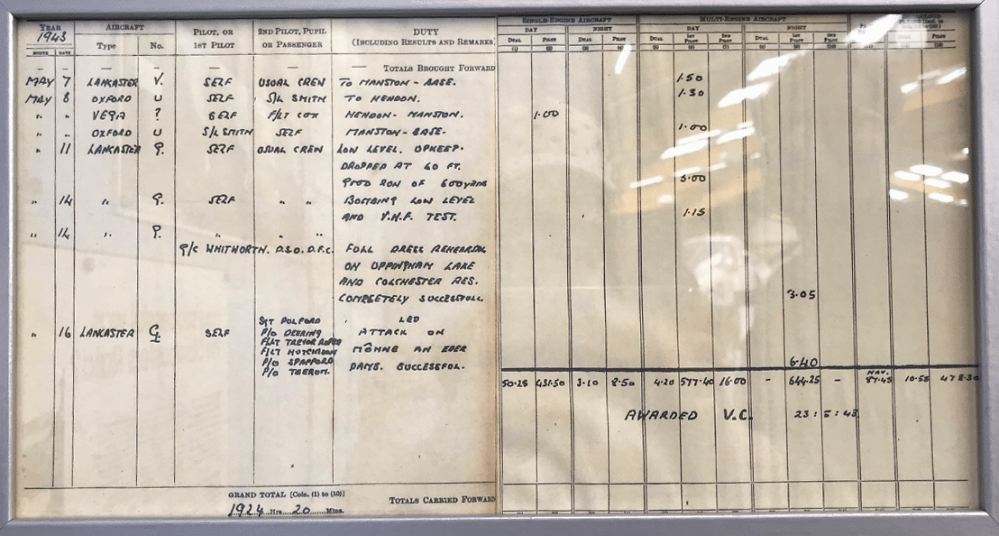 YEAR AIRCRAFT PILOT, OR 1ST PILOT 2ND PILOT, PUPIL OR PASSENGER DUTY (INCLUDING RESULTS AND REMARKS) SINGLE-ENGINE AIRCRAFT MULTI-ENGINE AIRCRAFT
1943 DAY NIGHT DAY NIGHT
MONTH DATE Type No. DUAL PILOT DUAL PILOT DUAL 1ST PILOT 2ND PILOT DUAL 1ST PILOT 2ND PILOT
(1) (2) (3) (4) (5) (6) (7) (8) (9) (10)
— — — — — — TOTALS BROUGHT FORWARD
MAY 7 LANCASTER V. SELF USUAL CREW TO MANSTON - BASE. 1.50
MAY 8 OXFORD U SELF S/L SMITH TO HENDON. 1.30
" " VEGA ? SELF F/LT COX HENDON - MANSTON. 1.00
OXFORD U S/L SMITH SELF MANSTON - BASE. 1.00
" 11 LANCASTER G. SELF USUAL CREW LOW LEVEL. UPKEEP.
DROPPED AT 60 FT.
GOOD RUN OF 600YARDS 5.00
" 14 " G. SELF " " BOMBING LOW LEVEL
AND V.H.F. TEST. 1.15
" 14 " G. " "
G/C WHITWORTH. D.S.O. D.F.C. FULL DRESS REHEARSAL
ON UPPINGHAM LAKE
AND COLCHESTER RES.
COMPLETELY SUCCESSFUL 3.05
" 16 LANCASTER G SELF SGT PULFORD LED
P/O DEERING ATTACK ON
F/LT TREVOR ROPER
F/LT HUTCHISON MÖHNE AN EDER
P/O SPAFFORD DAMS. SUCCESSFUL. 6.40
P/O TAERUM.
50.25 451.50 3.10 8.50 4.20 577.40 16.00 — 644.25 — NAV. 87.45 10.55 478.30
AWARDED V.C. 23:5:43
GRAND TOTAL [Cols. (1) to (10)]
1924 Hrs. 20 Mins.
TOTALS CARRIED FORWARD